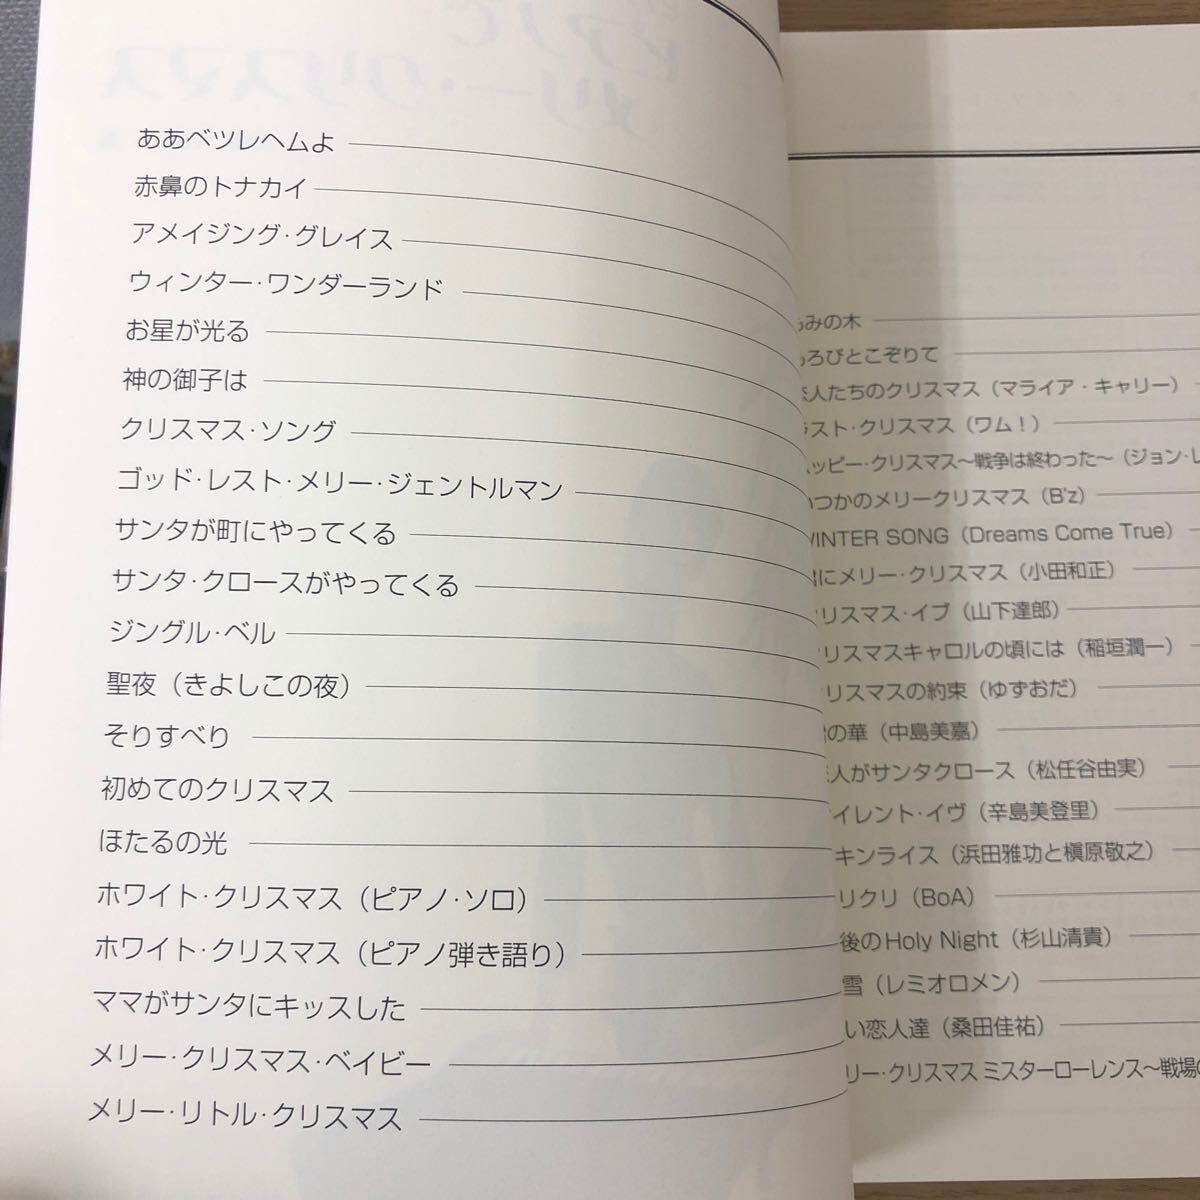 ああベツレヘムよ
赤鼻のトナカイ
アメイジング・グレイス
ウィンター・ワンダーランド
お星が光る
神の御子は
クリスマス・ソング
ゴッド・レスト・メリー・ジェントルマン
サンタが町にやってくる
サンタ・クロースがやってくる
ジングル・ベル
聖夜（きよしこの夜）
そりすべり
初めてのクリスマス
ほたるの光
ホワイト・クリスマス（ピアノ・ソロ）
ホワイト・クリスマス（ピアノ弾き語り）
ママがサンタにキッスした
メリー・クリスマス・ベイビー
メリー・リトル・クリスマス
みの木
ろびとこぞりて
人たちのクリスマス（マライア・キャリー）
スト・クリスマス（ワム！）
ッピー・クリスマス〜戦争は終わった〜（ジョン・レ
つかのメリークリスマス（B'z）
INTER SONG（Dreams Come True）
にメリー・クリスマス（小田和正）
リスマス・イブ（山下達郎）
リスマスキャロルの頃には（稲垣潤一）
リスマスの約束（ゆずおだ）
の華（中島美嘉）
人がサンタクロース（松任谷由実）
イレント・イヴ（辛島美登里）
キンライス（浜田雅功と槇原敬之）
リクリ（BoA）
後のHoly Night（杉山清貴）
雪（レミオロメン）
い恋人達（桑田佳祐）
リー・クリスマス ミスターローレンス〜戦場の